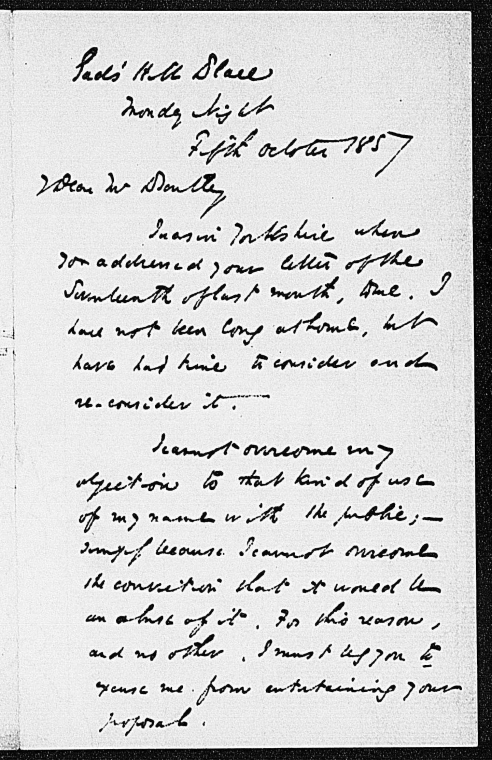 Gad's Hill Place
Monday Night
Fifth October 1857
Dear Mr Bentley
I was in Yorkshire when
you addressed your letter of the
Seventeenth of last month, to me. I
have not been long at home, but
have had time to consider and
re-consider it.
I cannot overcome my
objection to that kind of use
of my name with the public; —
simply because I cannot overcome
the conviction that it would be
an abuse of it. For this reason,
and no other, I must beg you to
excuse me from entertaining your
proposal.